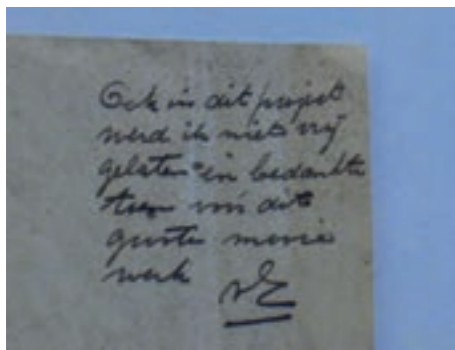 Ook in dit projekt
werd ik niet vrij
gelaten en bedankte
toen voor dit
groote mooie
werk